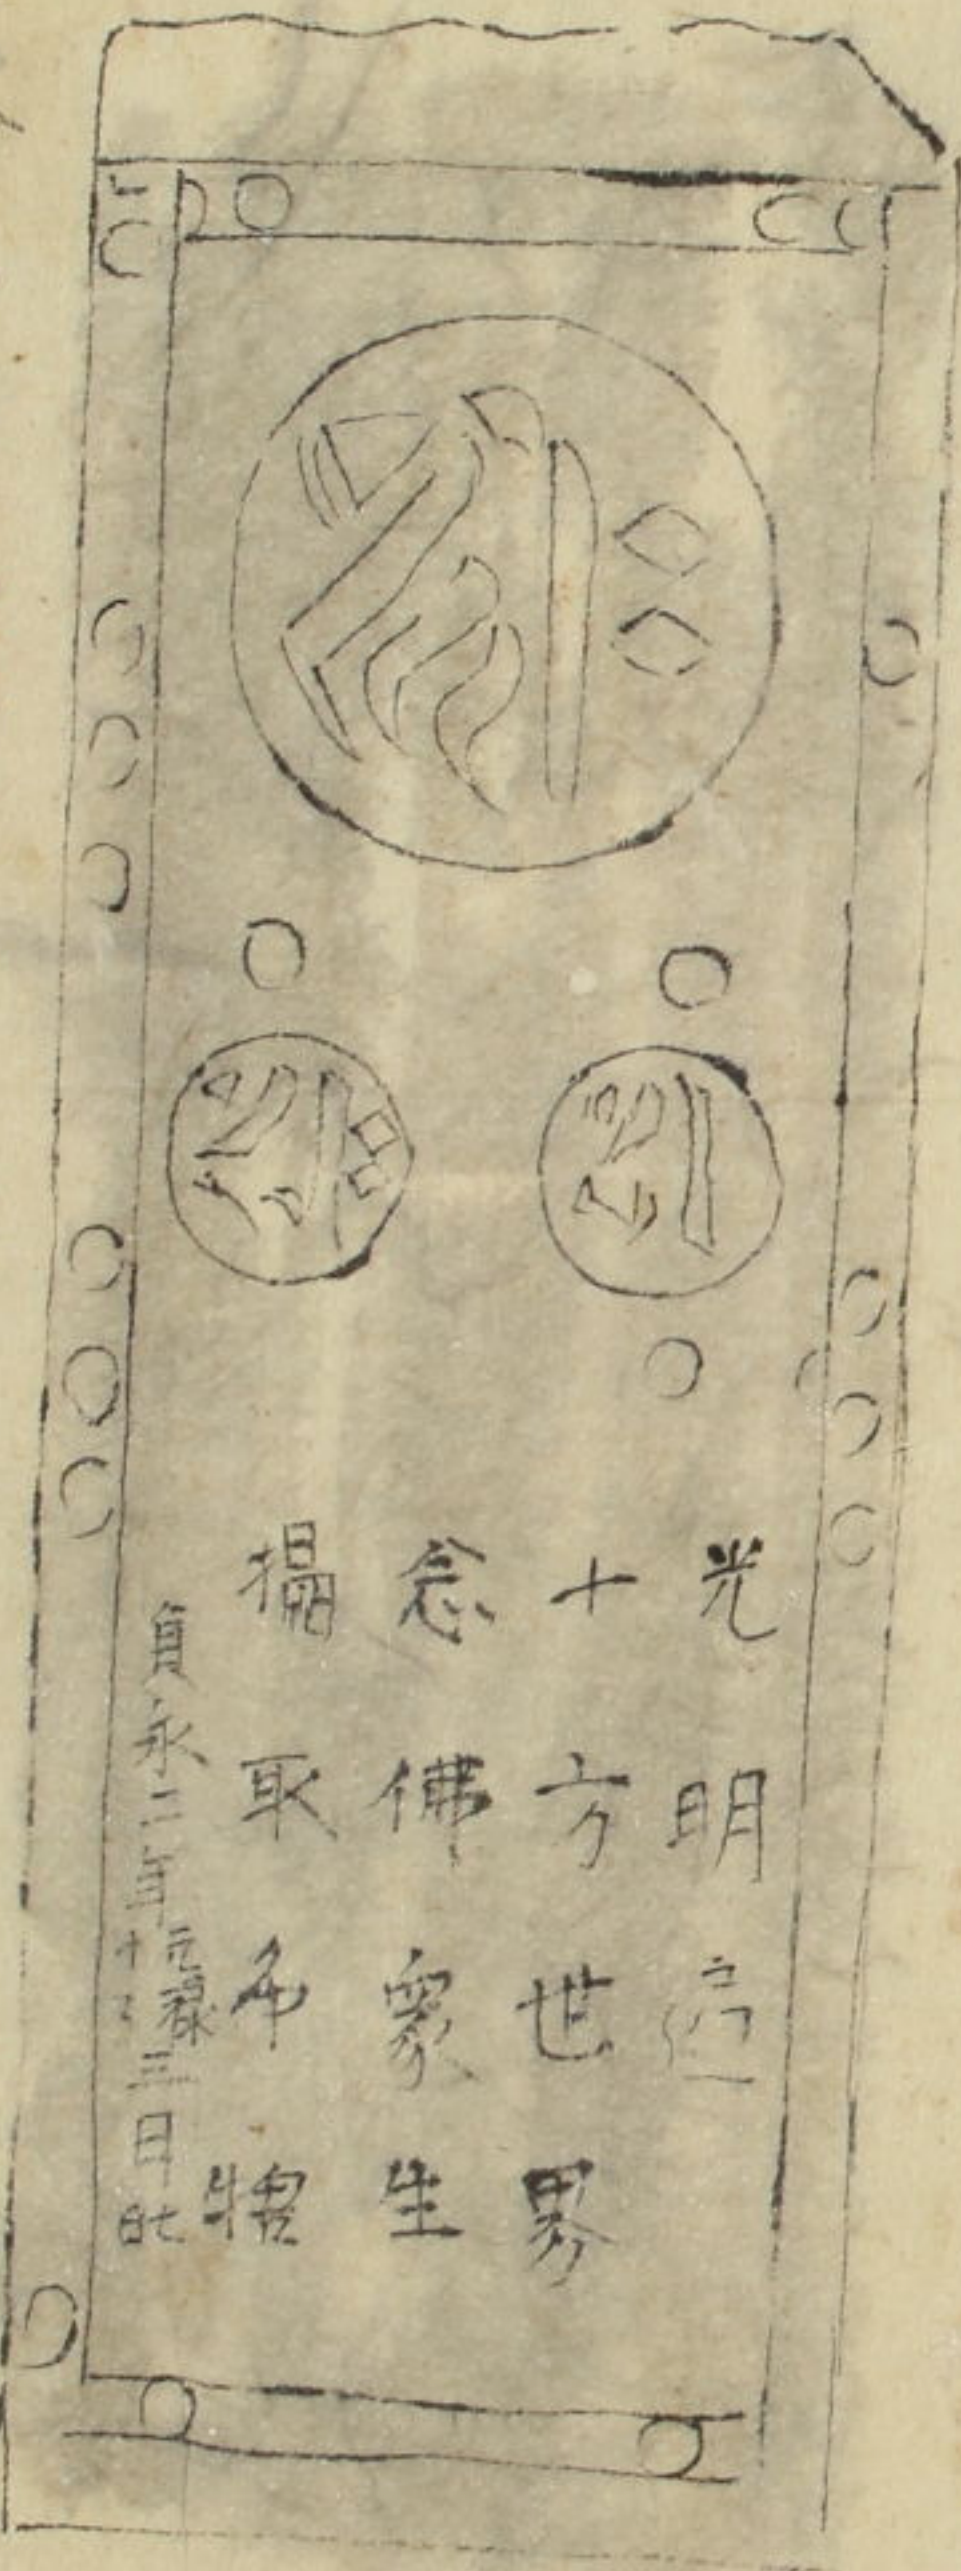 光明遍
十方世界
念佛衆生
攝取不捨
貞永二年元禄三日